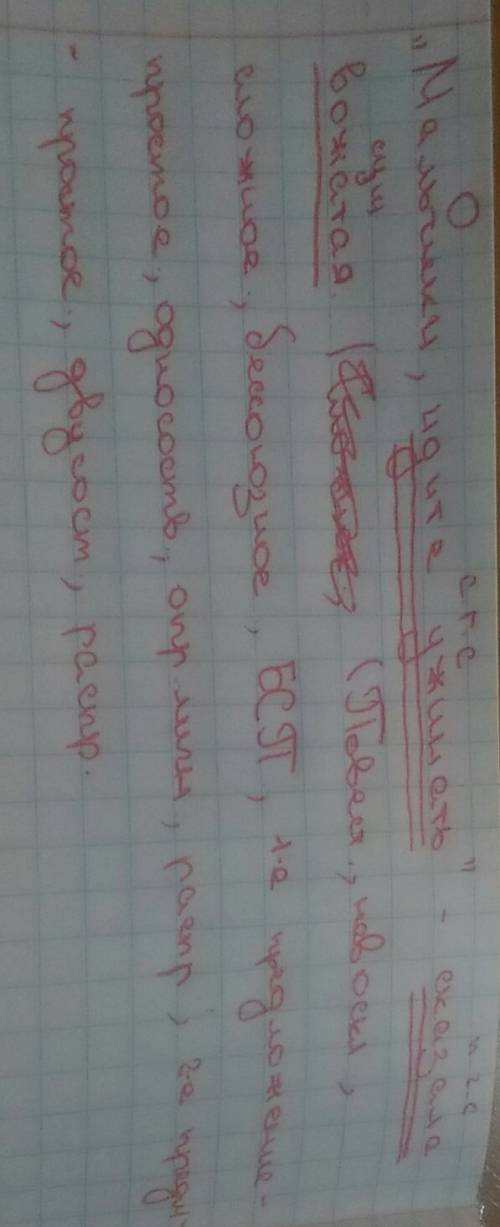 "Мальчики, идите ужинать" - сказала
с.г.с
п.г.с
сущ
вожатая. (Повест., невоскл,
сложное., бессоюзное, БСП, 1-е предложение-
простое., односост, опр личн, распр, 2-е предл.
- простое., двусост, распр.